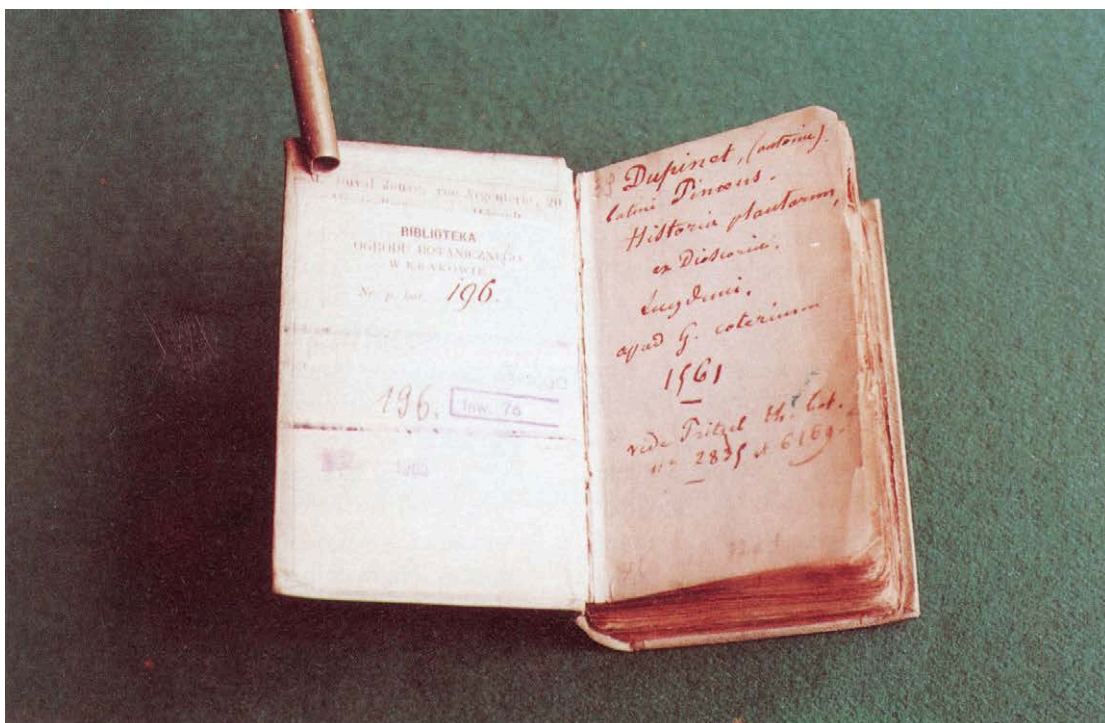 Duval Jouve, rue Argenterie, 20
BIBLIOTEKA
OGRODU BOTANICZNEGO
W KRAKOWIE
Nr. p. bot. 196.
196.
Inw. 76
Dupinet, (antoine).
latini Pinaeus.
Historia plantarum,
ex Dioscoride.
Lugduni,
apud G. coterium
1561
vide Pritzel th. bot.
n° 2835 et 6169.